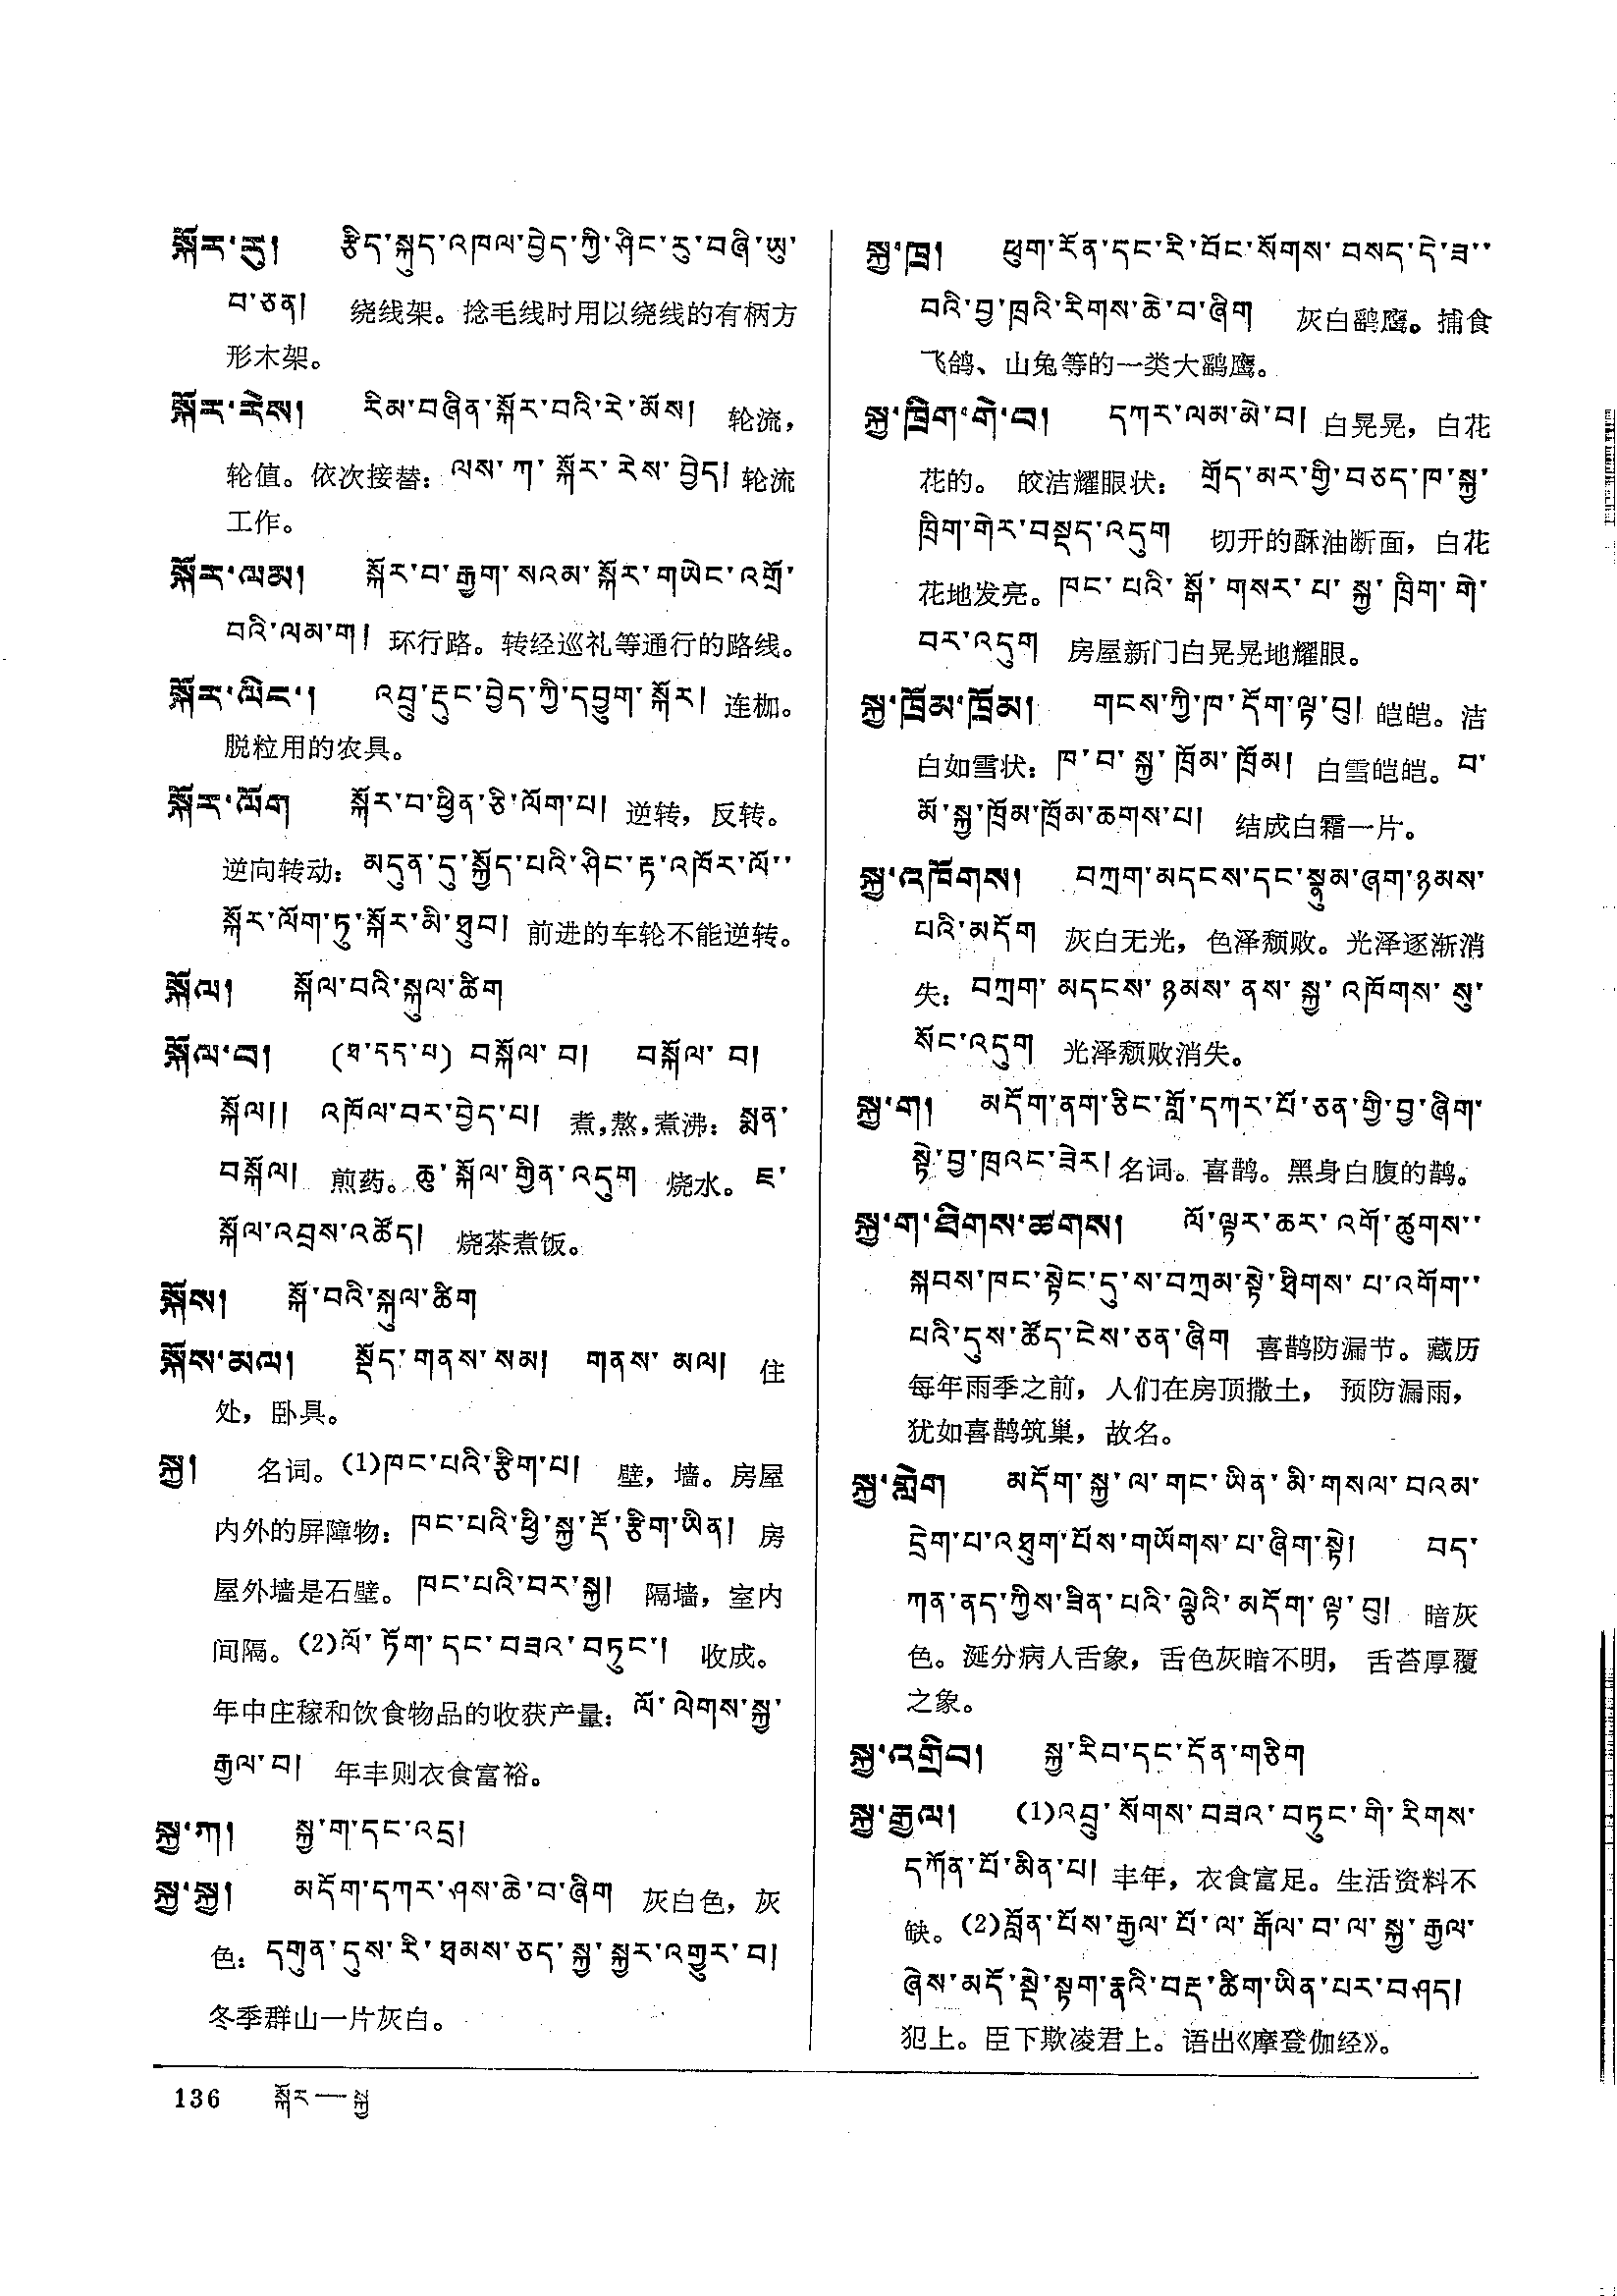 སྐོར་རུ། རྩིད་སྐུད་འཁལ་བྱེད་ཀྱི་ཤིང་རུ་བཞི་ཡུ་
བ་ཅན། 绕线架。捻毛线时用以绕线的有柄方
形木架。
སྐོར་རེས། རིམ་བཞིན་སྐོར་བའི་རེ་མོས། 轮流，
轮值。依次接替：ལས་ཀ་སྐོར་རེས་བྱེད། 轮流
工作。
སྐོར་ལམ། སྐོར་བ་རྒྱག་སའམ་སྐོར་གཡེང་འགྲོ་
བའི་ལམ་ག། 环行路。转经巡礼等通行的路线。
སྐོར་ལིང་། འབྲུ་རྡུང་བྱེད་ཀྱི་དབྱུག་སྐོར། 连枷。
脱粒用的农具。
སྐོར་ལོག སྐོར་བ་ཕྱིན་ཅི་ལོག་པ། 逆转，反转。
逆向转动：མདུན་དུ་སྐྱོད་པའི་ཤིང་རྟ་འཁོར་ལོ་་
སྐོར་ལོག་ཏུ་སྐོར་མི་ཐུབ། 前进的车轮不能逆转。
སྐོལ། སྐོལ་བའི་སྐུལ་ཚིག
སྐོལ་བ། (ཐ་དད་པ) བསྐོལ་བ། བསྐོལ་བ།
སྐོལ།། འཁོལ་བར་བྱེད་པ། 煮,熬,煮沸：སྨན་
བསྐོལ། 煎药。ཆུ་སྐོལ་གྱིན་འདུག 烧水。ཇ་
སྐོལ་འབྲས་འཚོད། 烧茶煮饭。
སྐོས། སྐོ་བའི་སྐུལ་ཚིག
སྐོས་མལ། སྡོད་གནས་སམ། གནས་མལ། 住
处，卧具。
སྐྱ། 名词。(1)ཁང་པའི་རྩིག་པ། 壁，墙。房屋
内外的屏障物：ཁང་པའི་ཕྱི་སྐྱ་རྡོ་རྩིག་ཡིན། 房
屋外墙是石壁。ཁང་པའི་བར་སྐྱ། 隔墙，室内
间隔。(2)ལོ་ཏོག་དང་བཟའ་བཏུང་། 收成。
年中庄稼和饮食物品的收获产量：ལོ་ལེགས་སྐྱ་
རྒྱལ་བ། 年丰则衣食富裕。
སྐྱ་ཀ། སྐྱ་ག་དང་འདྲ།
སྐྱ་སྐྱ། མདོག་དཀར་ཤས་ཆེ་བ་ཞིག 灰白色，灰
色：དགུན་དུས་རི་ཐམས་ཅད་སྐྱ་སྐྱར་འགྱུར་བ།
冬季群山一片灰白。
སྐྱ་ཁྲ། ཕུག་རོན་དང་རི་བོང་སོགས་བསད་དེ་ཟ་་
བའི་བྱ་ཁྲའི་རིགས་ཆེ་བ་ཞིག 灰白鹞鹰。捕食
飞鸽、山兔等的一类大鹞鹰。
སྐྱ་ཁྲིག་གེ་བ། དཀར་ལམ་མེ་བ། 白晃晃，白花
花的。 皎洁耀眼状：གྲོད་མར་གྱི་བཅད་ཁ་སྐྱ་
ཁྲིག་གེར་བསྡད་འདུག 切开的酥油断面，白花
花地发亮。ཁང་པའི་སྒོ་གསར་པ་སྐྱ་ཁྲིག་གེ་
བར་འདུག 房屋新门白晃晃地耀眼。
སྐྱ་ཁྲོམ་ཁྲོམ། གངས་ཀྱི་ཁ་དོག་ལྟ་བུ། 皑皑。洁
白如雪状：ཁ་བ་སྐྱ་ཁྲོམ་ཁྲོམ། 白雪皑皑。བ་
མོ་སྐྱ་ཁྲོམ་ཁྲོམ་ཆགས་པ། 结成白霜一片。
སྐྱ་འཁོགས། བཀྲག་མདངས་དང་སྣུམ་ཞག་ཉམས་
པའི་མདོག 灰白无光，色泽颓败。光泽逐渐消
失：བཀྲག་མདངས་ཉམས་ནས་སྐྱ་འཁོགས་སུ་
སོང་འདུག 光泽颓败消失。
སྐྱ་ག། མདོག་ནག་ཅིང་གློ་དཀར་པོ་ཅན་གྱི་བྱ་ཞིག་
སྟེ་བྱ་ཁྲའང་ཟེར། 名词。喜鹊。黑身白腹的鹊。
སྐྱ་ག་ཐིགས་ཚགས། ལོ་ལྟར་ཆར་འགོ་ཚུགས་་
སྐབས་ཁང་སྟེང་དུ་ས་བཀྲམ་སྟེ་ཐིགས་པ་འགོག་་
པའི་དུས་ཚོད་ངེས་ཅན་ཞིག 喜鹊防漏节。藏历
每年雨季之前，人们在房顶撒土， 预防漏雨，
犹如喜鹊筑巢，故名。
སྐྱ་གླེག མདོག་སྐྱ་ལ་གང་ཡིན་མི་གསལ་བའམ་
དྲེག་པ་འཐུག་པོས་གཡོགས་པ་ཞིག་སྟེ། བད་
ཀན་ནད་ཀྱིས་ཟིན་པའི་ལྕེའི་མདོག་ལྟ་བུ། 暗灰
色。涎分病人舌象，舌色灰暗不明， 舌苔厚覆
之象。
སྐྱ་འགྲིབ། སྐྱ་རིབ་དང་དོན་གཅིག
སྐྱ་རྒྱལ། (1)འབྲུ་སོགས་བཟའ་བཏུང་གི་རིགས་
དཀོན་པོ་མིན་པ། 丰年，衣食富足。生活资料不
缺。(2)བློན་པོས་རྒྱལ་པོ་ལ་རྒོལ་བ་ལ་སྐྱ་རྒྱལ་
ཞེས་མདོ་སྡེ་སྟག་རྣའི་བརྡ་ཚིག་ཡིན་པར་བཤད།
犯上。臣下欺凌君上。语出《摩登伽经》。
136 སྐོར—སྐྱ